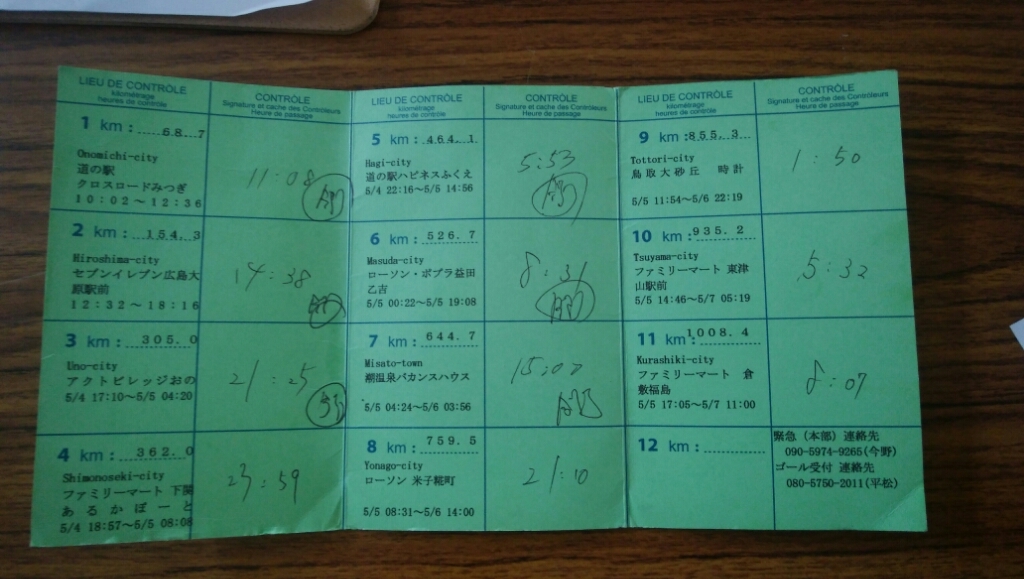 LIEU DE CONTRÔLE
kilométrage
heures de contrôle
CONTRÔLE
Signature et cache des Contrôleurs
Heure de passage
1 km : 68.7
Onomichi-city
道の駅
クロスロードみつぎ
10:02～12:36
11:08
2 km : 154.3
Hiroshima-city
セブンイレブン広島大
原駅前
12:32～18:16
14:38
3 km : 305.0
Uno-city
アクトビレッジおの
5/4 17:10～5/5 04:20
21:25
4 km : 362.0
Shimonoseki-city
ファミリーマート 下関
あるかぽーと
5/4 18:57～5/5 08:08
23:59
LIEU DE CONTRÔLE
kilométrage
heures de contrôle
CONTRÔLE
Signature et cache des Contrôleurs
Heure de passage
5 km : 464.1
Hagi-city
道の駅ハピネスふくえ
5/4 22:16～5/5 14:56
5:53
6 km : 526.7
Masuda-city
ローソン・ポプラ益田
乙吉
5/5 00:22～5/5 19:08
8:31
7 km : 644.7
Misato-town
潮温泉バカンスハウス
5/5 04:24～5/6 03:56
15:00
8 km : 759.5
Yonago-city
ローソン 米子糀町
5/5 08:31～5/6 14:00
21:10
LIEU DE CONTRÔLE
kilométrage
heures de contrôle
CONTRÔLE
Signature et cache des Contrôleurs
Heure de passage
9 km : 855.3
Tottori-city
鳥取大砂丘 時計
5/5 11:54～5/6 22:19
1:50
10 km : 935.2
Tsuyama-city
ファミリーマート 東津
山駅前
5/5 14:46～5/7 05:19
5:32
11 km : 1008.4
Kurashiki-city
ファミリーマート 倉
敷福島
5/5 17:05～5/7 11:00
8:07
12 km :
緊急（本部）連絡先
090-5974-9265(今野)
ゴール受付 連絡先
080-5750-2011(平松)